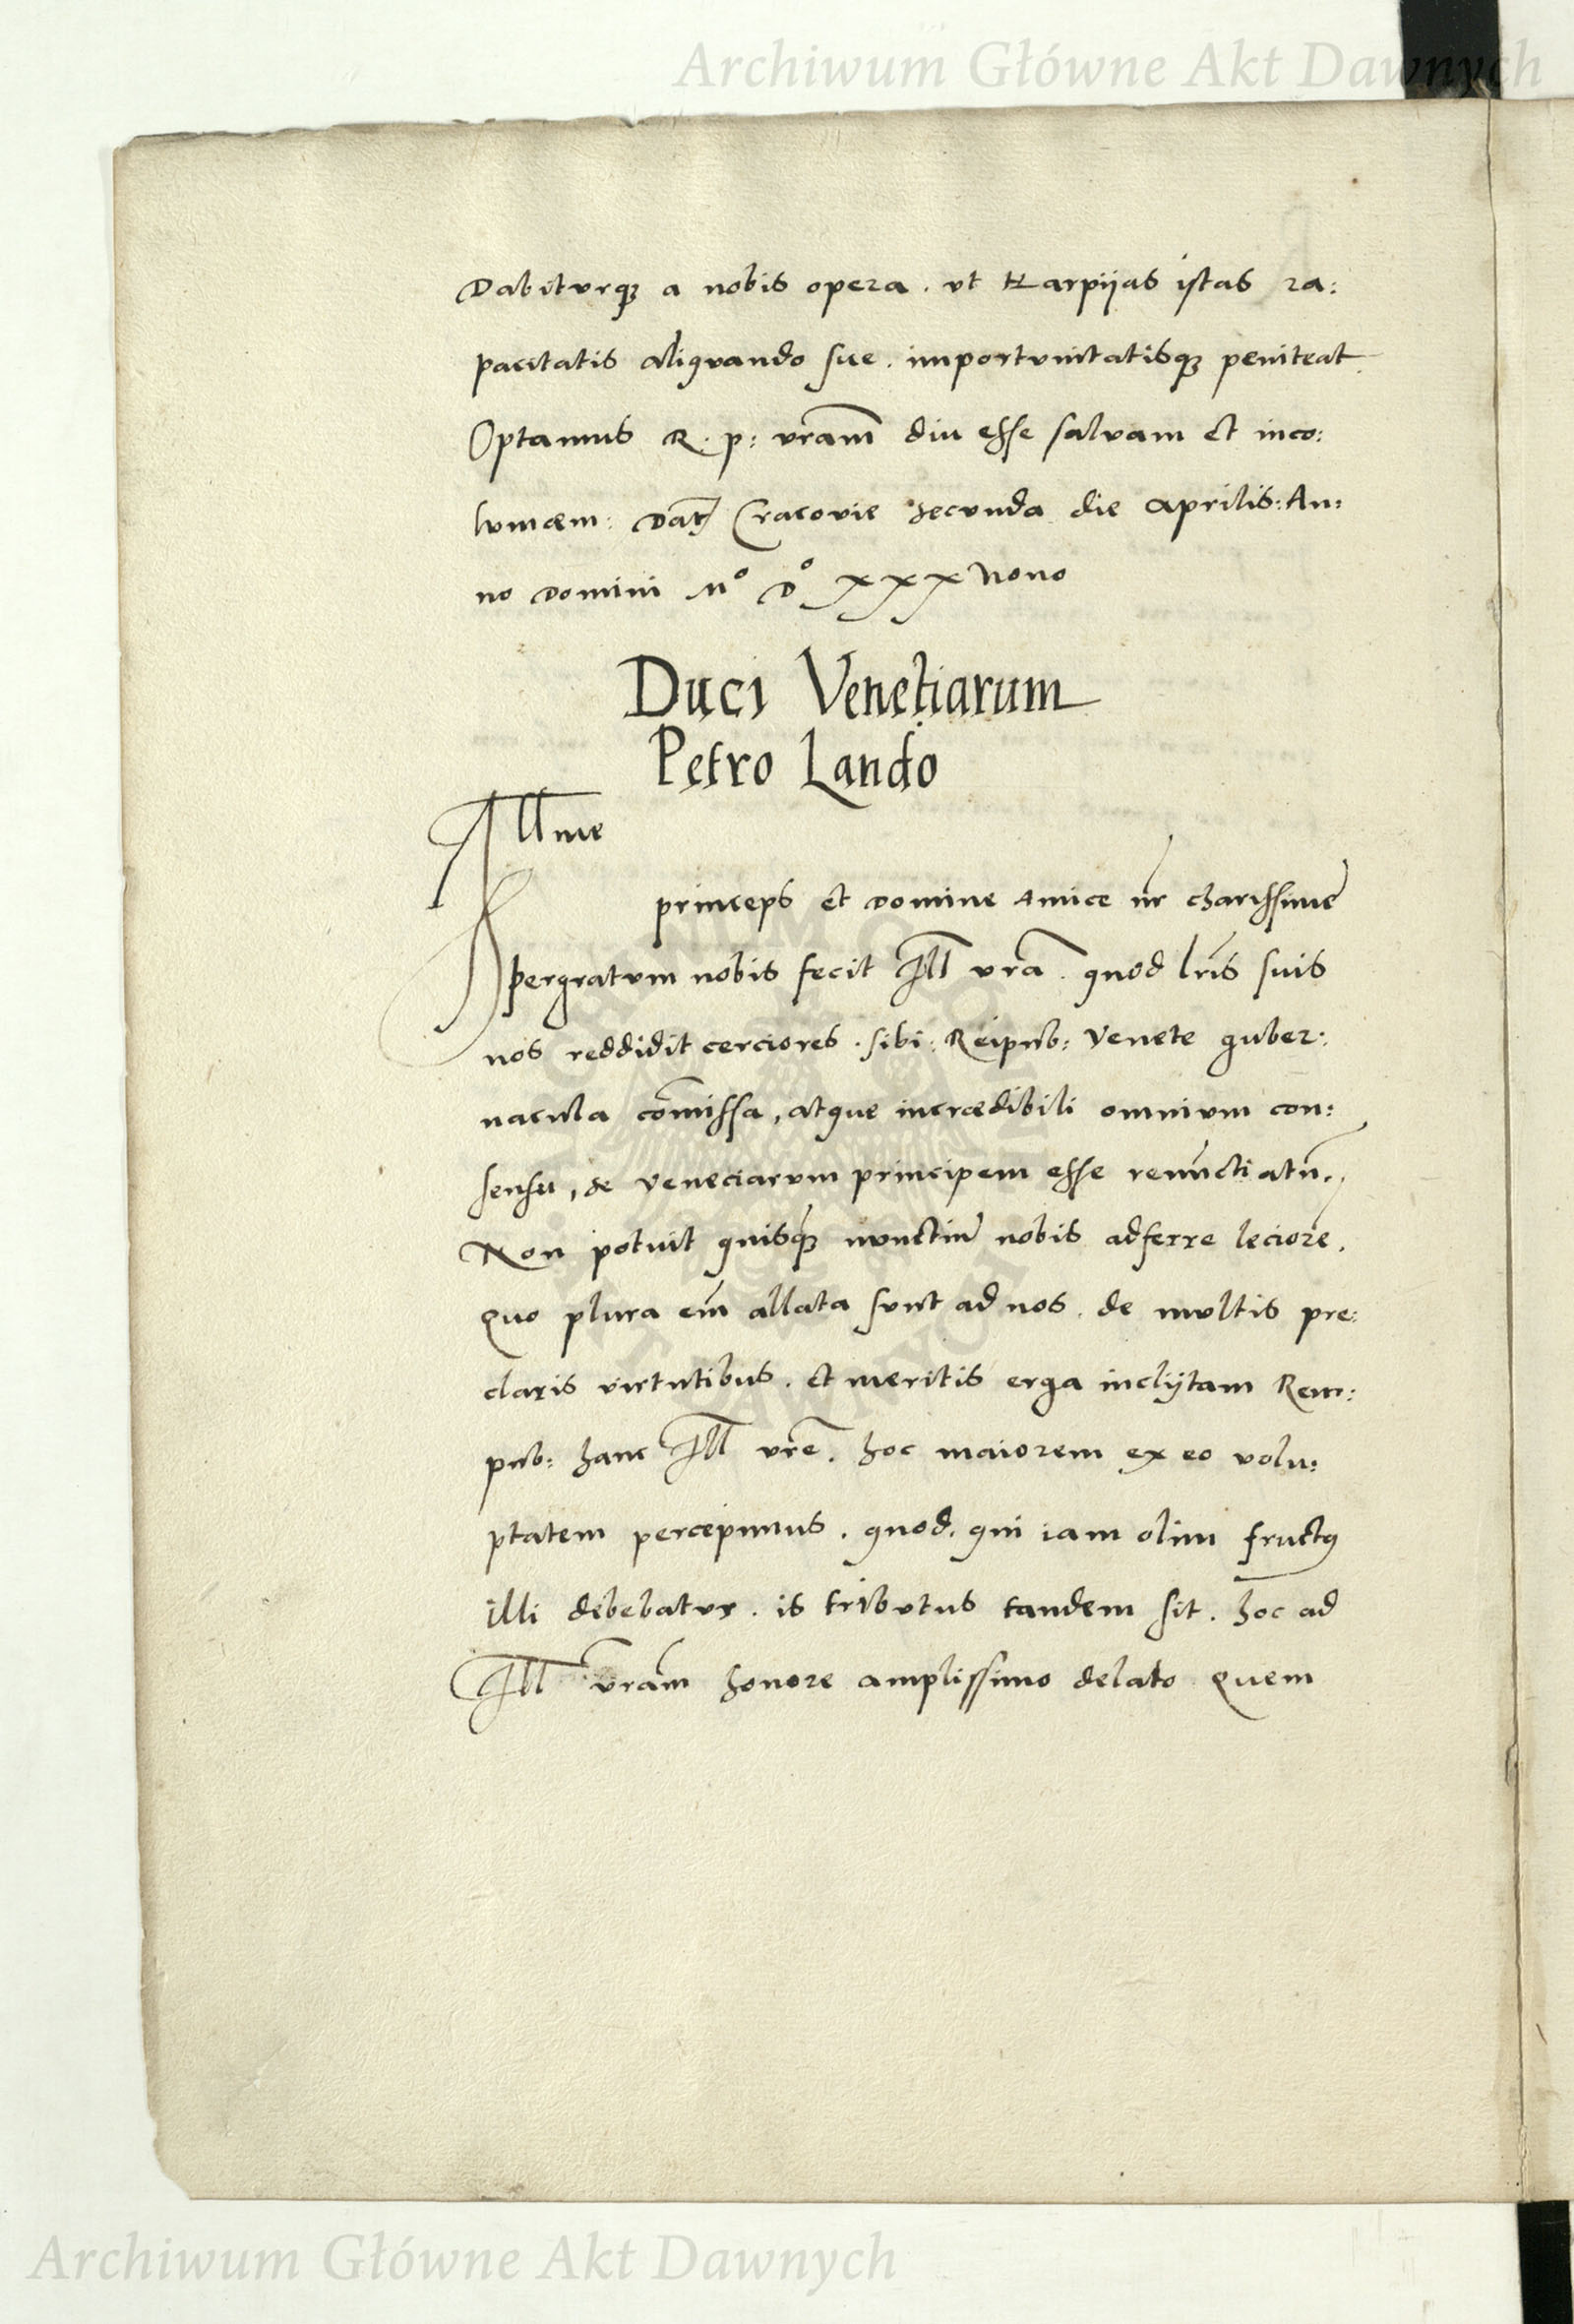 Archiwum Główne Akt Dawnych
Dabiturq; a nobis opera . ut Harpijas istas ra:
pacitatis aliquando sue . importunitatisq; peniteat
Optamus R. p: vram̄ diu esse salvam et inco:
lumæm : Dat Cracovie secunda die Aprilis: An:
no Domini Mº Dº xxx Nono
Duci Venetiarum
Petro Lando
Illme
princeps et Domine Amice nr̄ charissime
pergratum nobis fecit Ill vrā . quod lrīs suis
nos reddidit cerciores . sibi : Reipub: Venete guber:
nacula com̄issa, atque incrædibili omnium con:
sensu, se Veneciarum principem esse renūctiatū.
Non potuit quisq̄; nunctiū nobis adferre leciorē.
Quo plura eīm allata sunt ad nos . de multis pre:
claris virtutibus . et meritis erga inclijtam Rem:
pub: hanc Ill vrē . hoc maiorem ex eo volu:
ptatem percepimus . quod . qui iam olim fructꝰ
illi debebatur . is tributus tandem sit . hoc ad
Ill vrām honore amplissimo delato Quem
Archiwum Główne Akt Dawnych